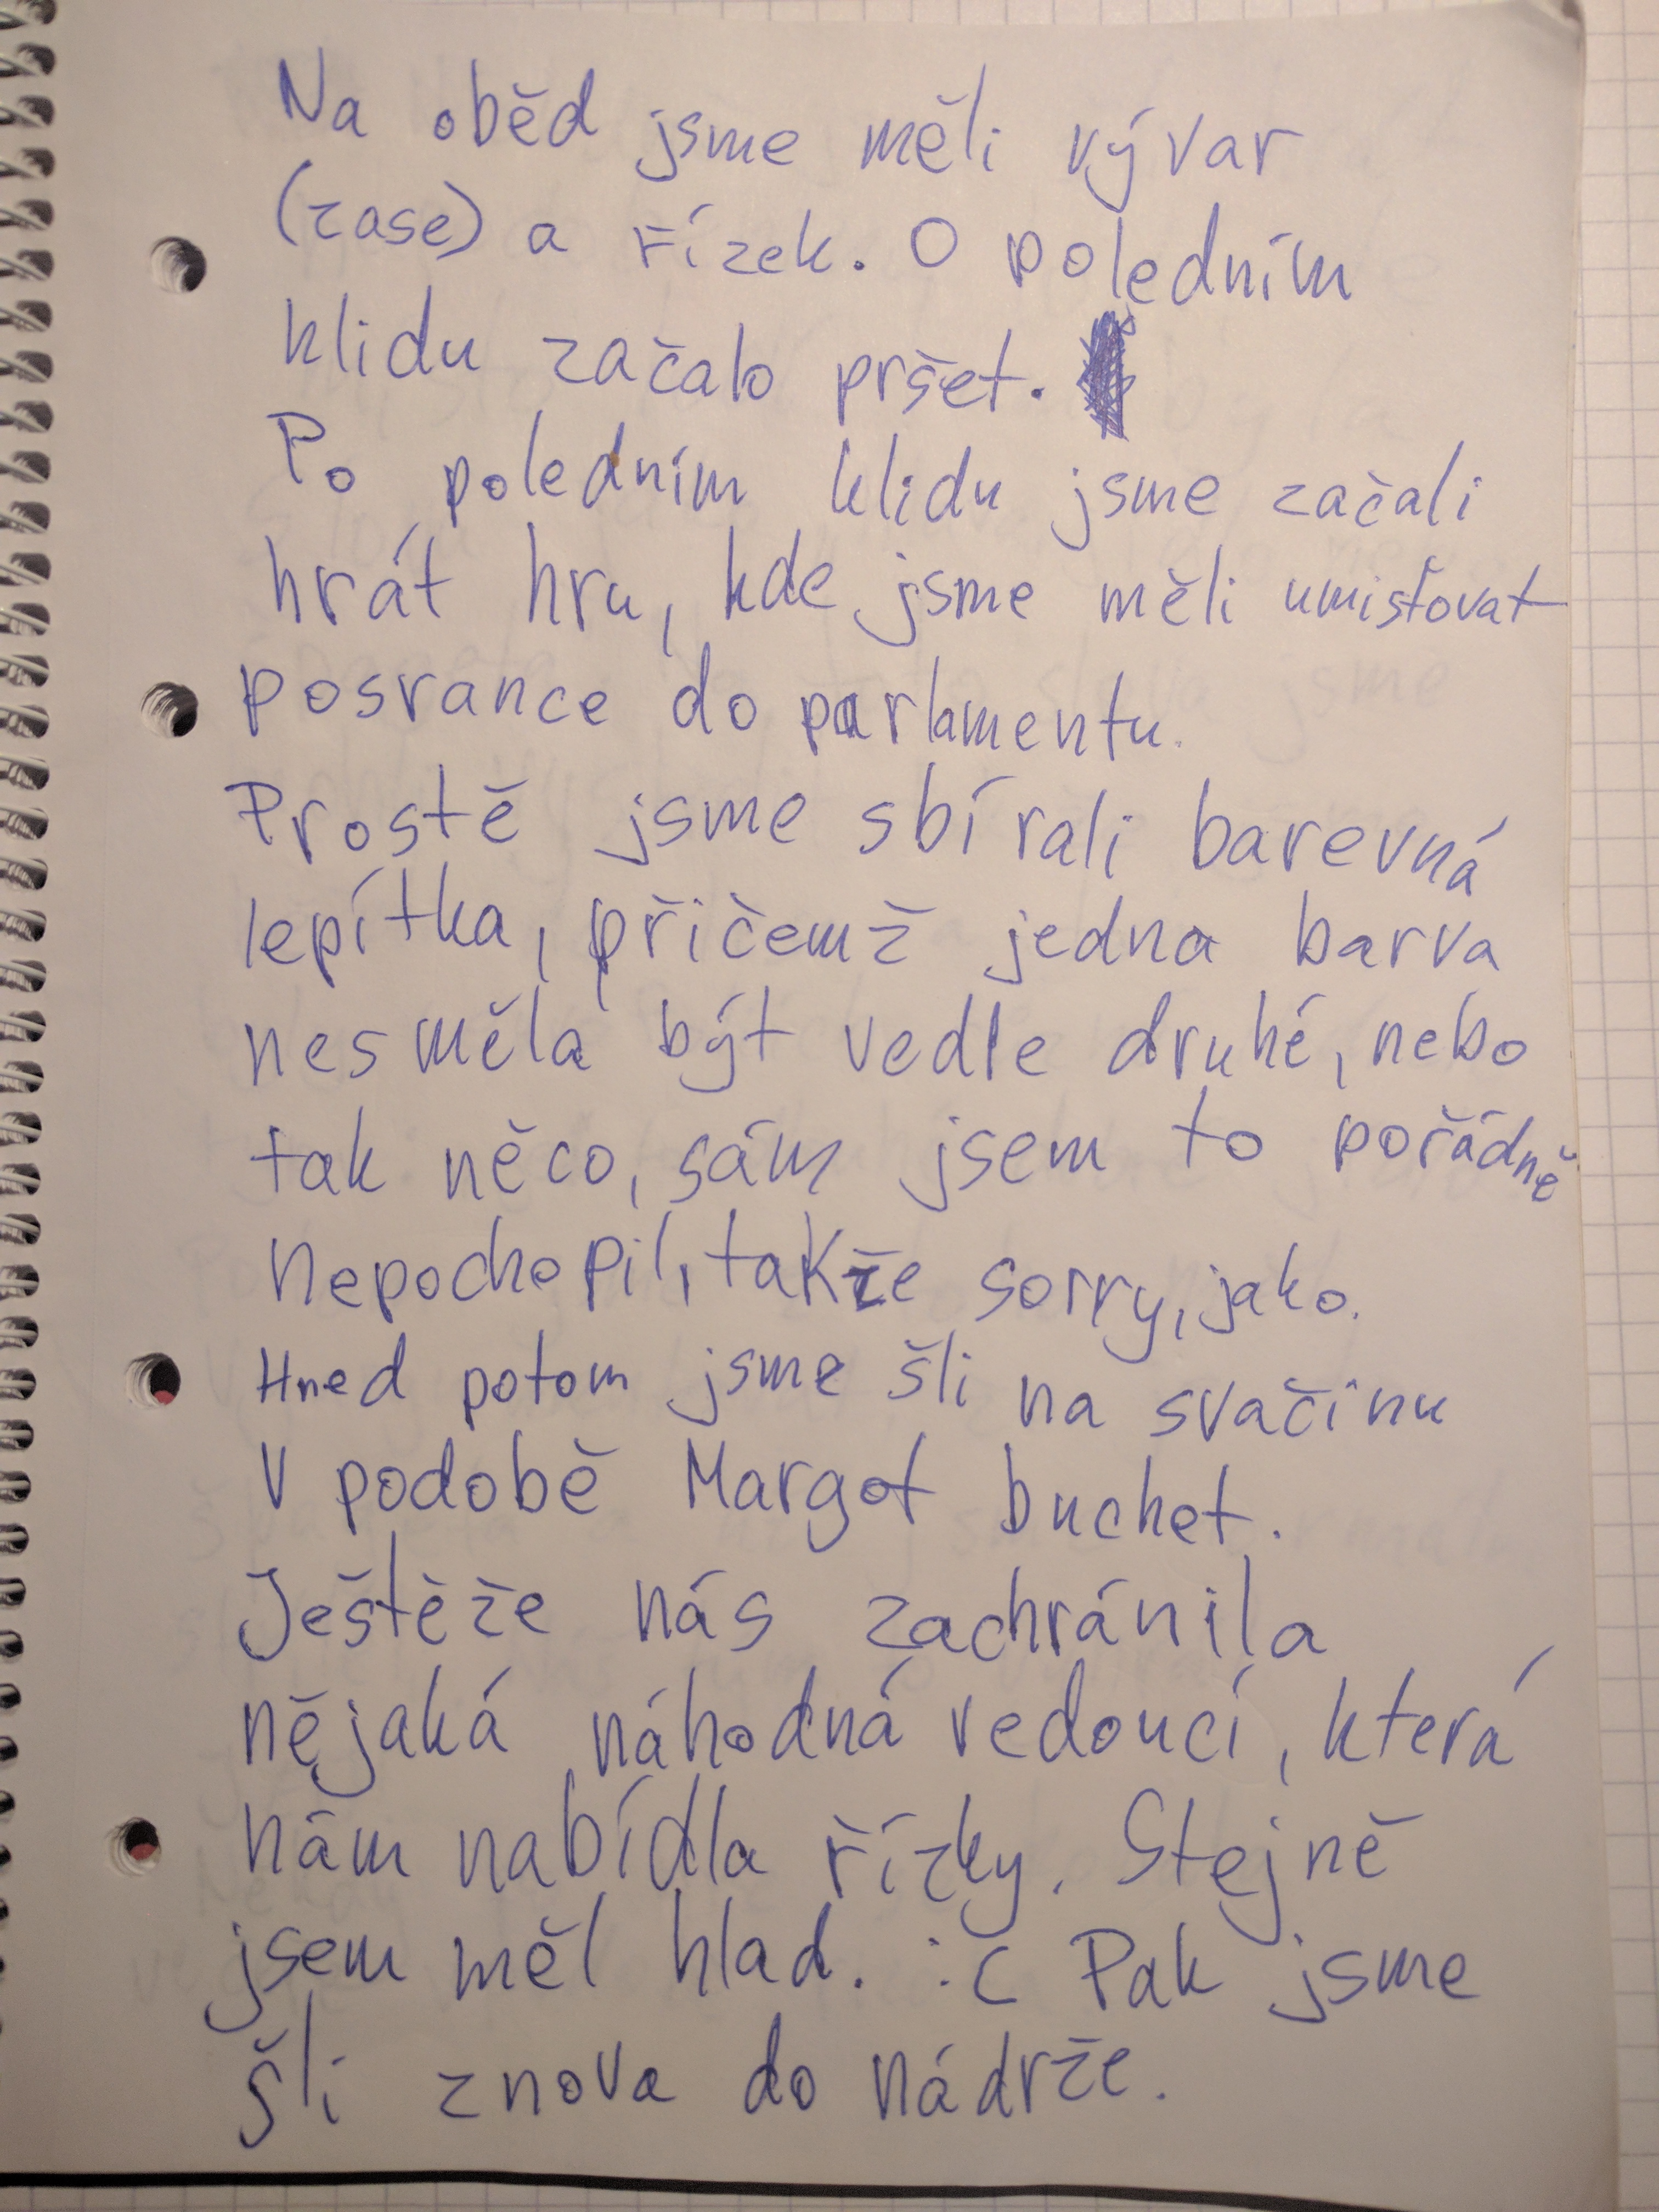 Na oběd jsme měli vývar
(zase) a řízek. O poledním
klidu začalo pršet.
Po poledním klidu jsme začali
hrát hru, kde jsme měli umisťovat
posrance do parlamentu.
Prostě jsme sbírali barevná
lepítka, přičemž jedna barva
nesměla být vedle druhé, nebo
tak něco, sám jsem to pořádně
nepochopil, takže sorry, jako.
Hned potom jsme šli na svačinu
V podobě Margot buchet.
Ještěže nás zachránila
nějaká náhodná vedoucí, která
nám nabídla řízky. Stejně
jsem měl hlad. :C Pak jsme
šli znova do nádrže.